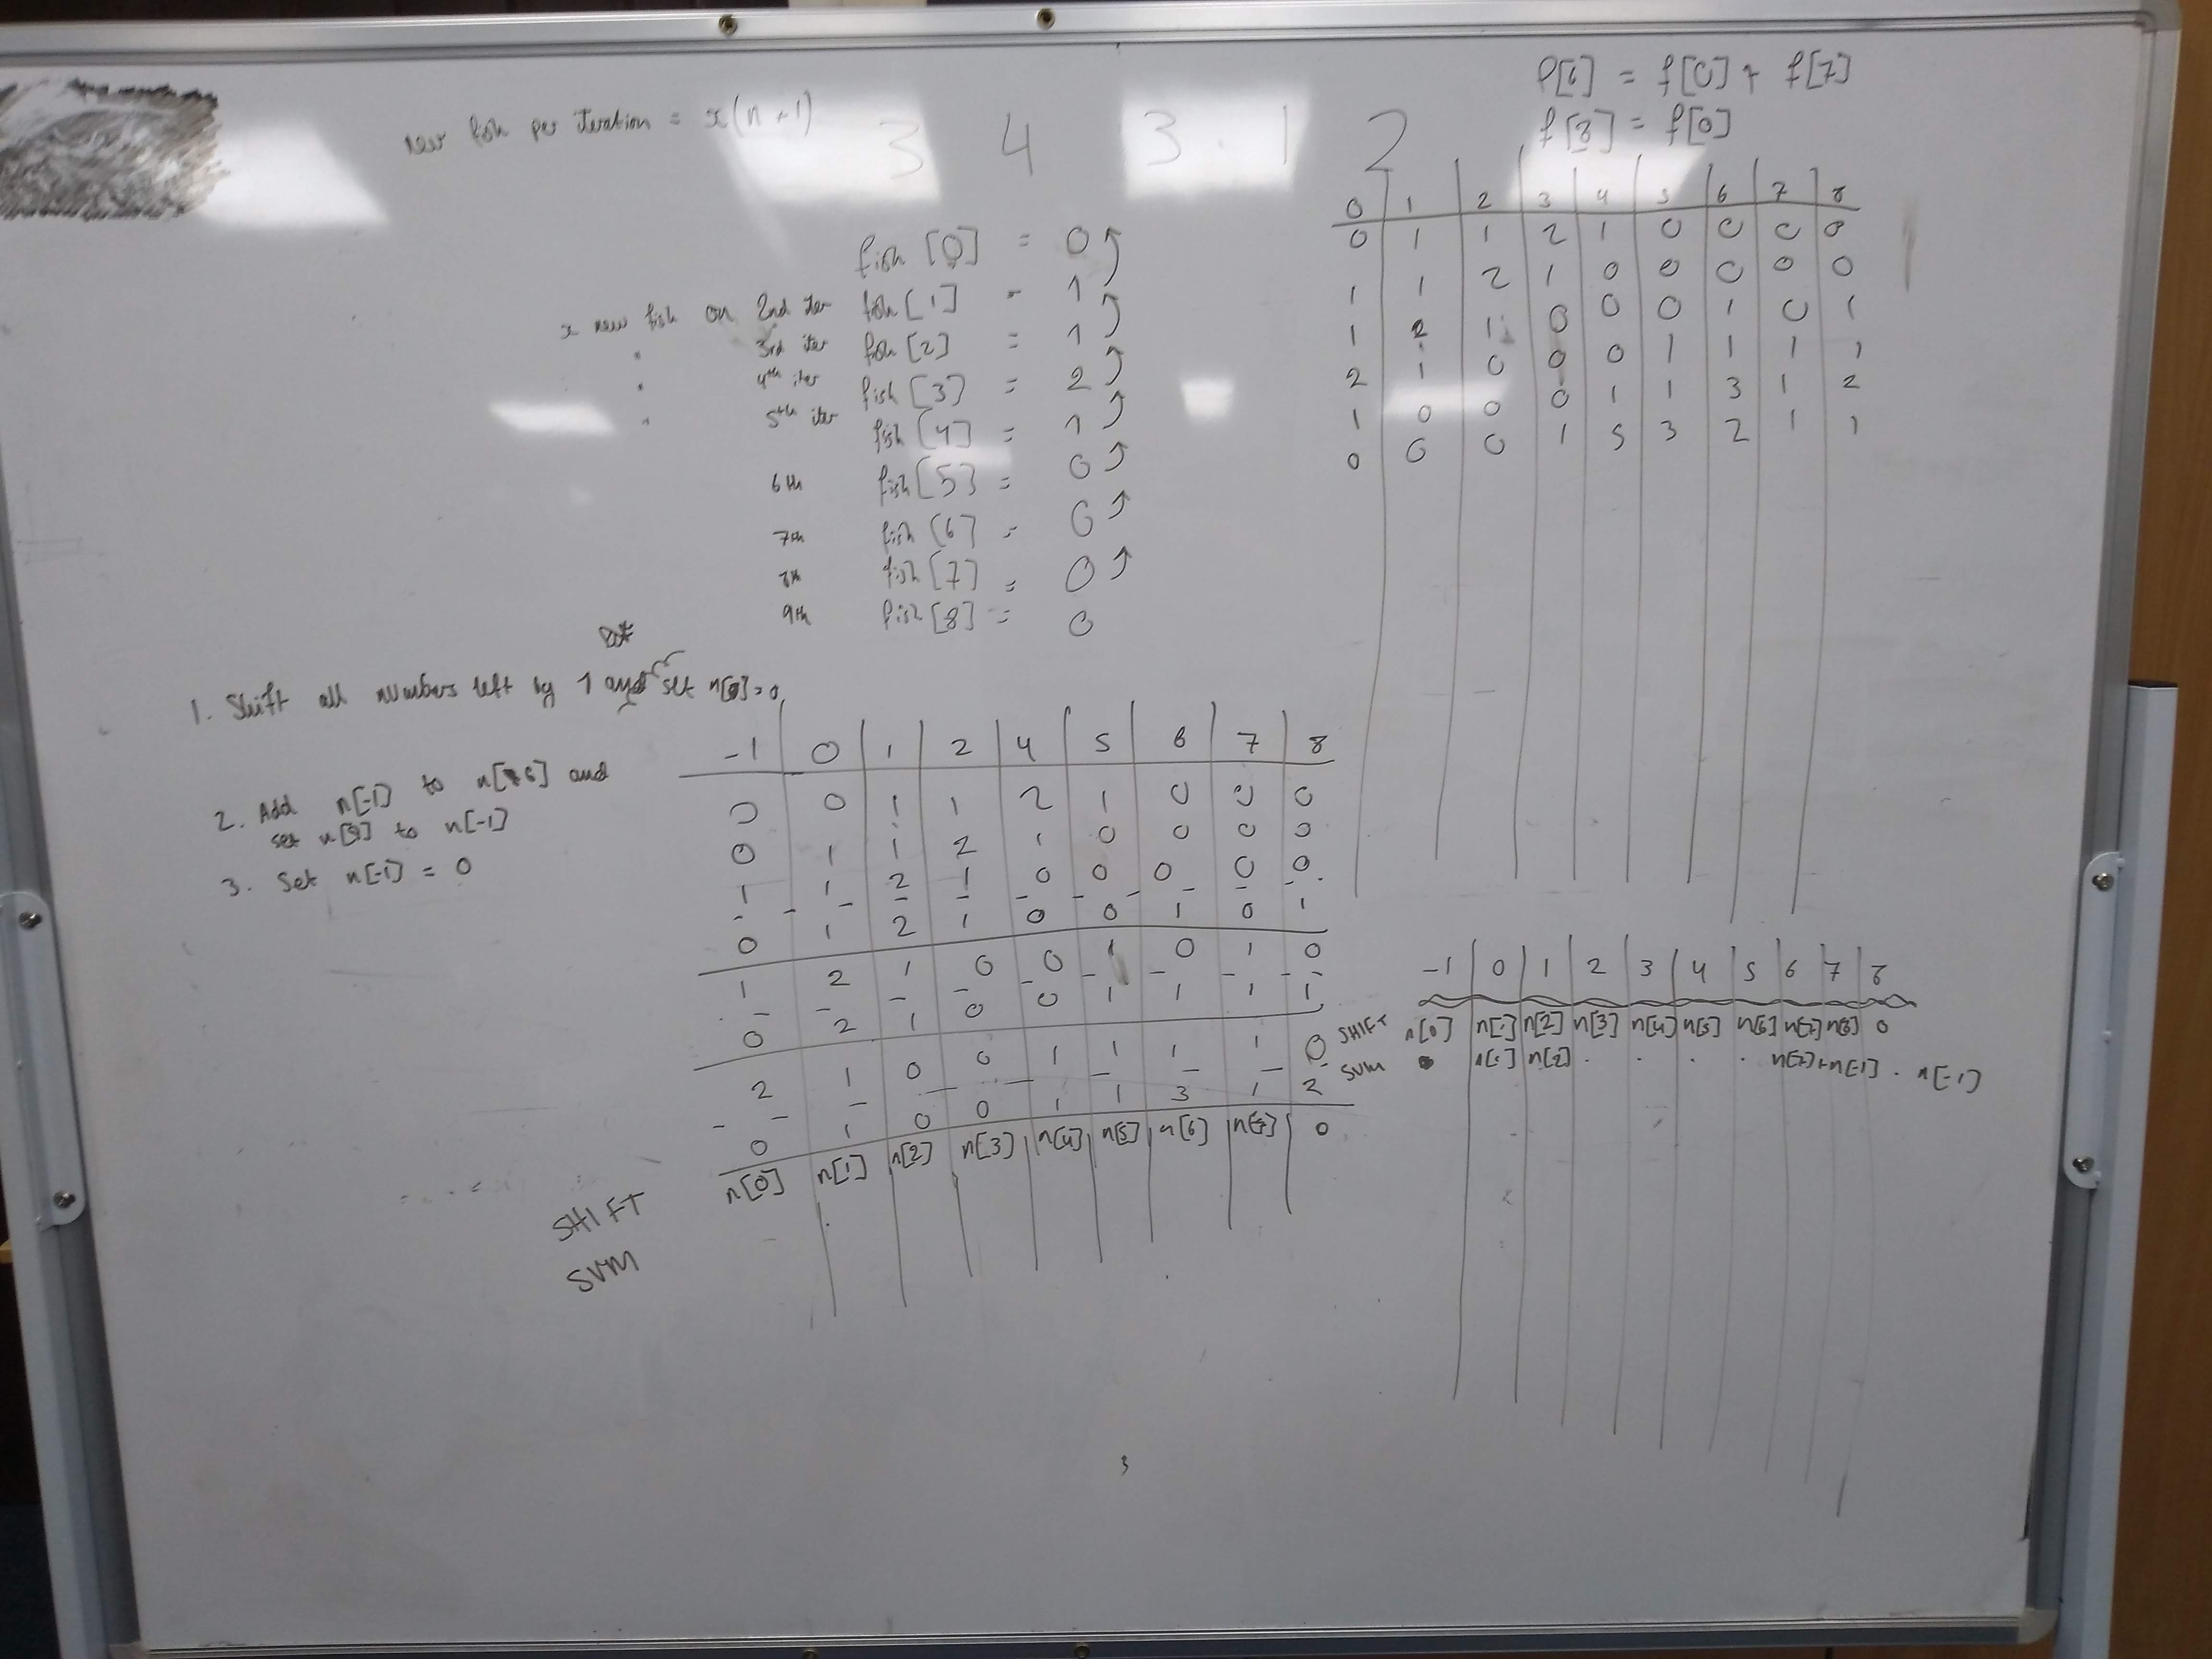 new fish per iteration = x(n+1)
3 4 3 1 2
f[6] = f[0] + f[7]
f[8] = f[0]
0 1 2 3 4 5 6 7 8
0 1 1 2 1 0 0 0 0
1 1 2 1 0 0 0 0 0
1 2 1 0 0 0 1 0 1
2 1 0 0 0 1 1 1 1
1 0 0 0 1 1 3 1 2
0 0 0 1 5 3 2 1 1
fish [0] = 0
x new fish on 2nd iter fish [1] = 1
" 3rd iter fish [2] = 1
" 4th iter fish [3] = 2
" 5th iter fish [4] = 1
6th fish [5] = 0
7th fish [6] = 0
8th fish [7] = 0
9th fish [8] = 0
1. Shift all numbers left by 1 and set n[8]=0
2. Add n[-1] to n[6] and
set n[8] to n[-1]
3. Set n[-1] = 0
-1 0 1 2 4 5 6 7 8
0 0 1 1 2 1 0 0 0
0 1 1 2 1 0 0 0 0
1 1 2 1 0 0 0 0 0
0 1 2 1 0 0 1 0 1
1 2 1 0 0 1 0 1 0
0 2 1 0 0 1 1 1 1
2 1 0 0 1 1 1 1 0
0 1 0 0 1 1 3 1 2
SHIFT n[0] n[1] n[2] n[3] n[4] n[5] n[6] n[7] 0
SUM
-1 0 1 2 3 4 5 6 7 8
SHIFT n[0] n[1] n[2] n[3] n[4] n[5] n[6] n[7] n[8] 0
SUM n[1] n[2] . . . . n[7]+n[-1] . n[-1]
3